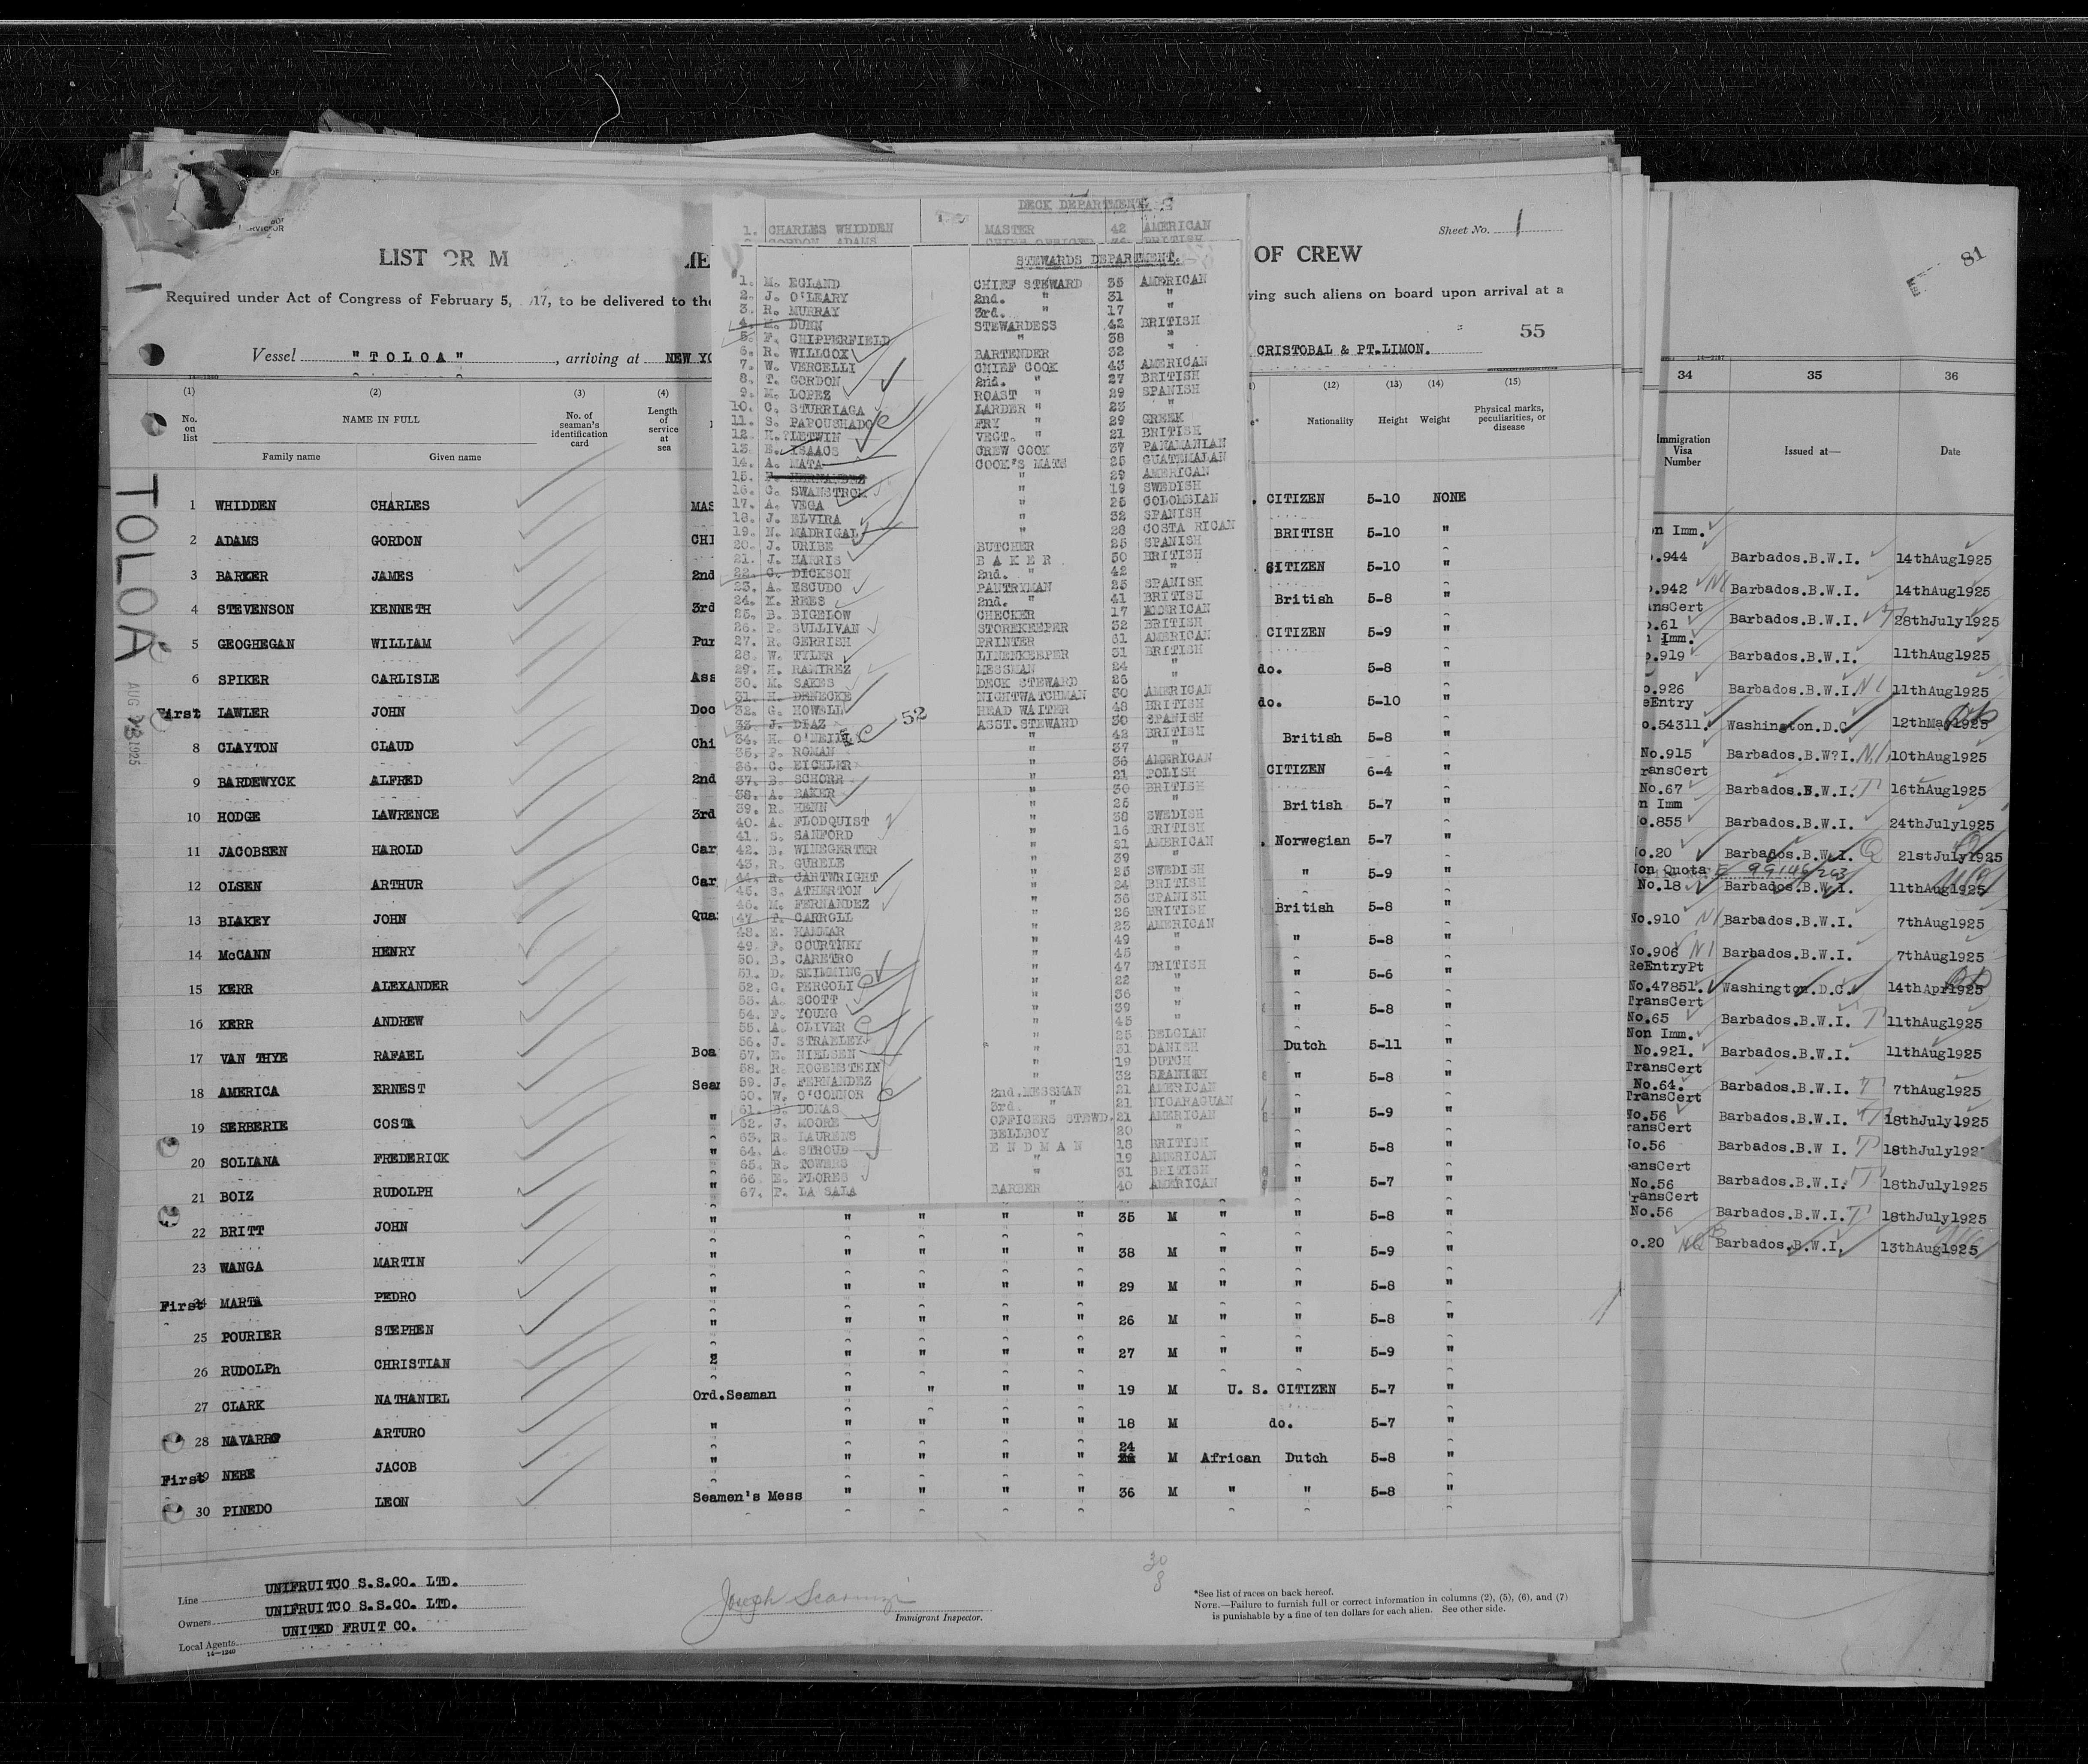 Sheet No. 1
LIST OR M
OF CREW
Required under Act of Congress of February 5, 17, to be delivered to the
ving such aliens on board upon arrival at a
55
Vessel "TOLOA", arriving at NEW YO
CRISTOBAL & PT.LIMON.
TOLOA
AUG 1925
(1) (2) (3) (4) (12) (13) (14) (15)
No. on list NAME IN FULL No. of seaman's identification card Length of service at sea Nationality Height Weight Physical marks, peculiarities, or disease
Family name Given name
1 WHIDDEN CHARLES MAS CITIZEN 5-10 NONE
2 ADAMS GORDON CHI BRITISH 5-10 "
3 BARKER JAMES 2nd CITIZEN 5-10 "
4 STEVENSON KENNETH 3rd British 5-8 "
5 GEOGHEGAN WILLIAM Pur CITIZEN 5-9 "
6 SPIKER CARLISLE Ass do. 5-8 "
First LAWLER JOHN Doc do. 5-10 "
8 CLAYTON CLAUD Chi British 5-8 "
9 BARDEWYCK ALFRED 2nd CITIZEN 6-4 "
10 HODGE LAWRENCE 3rd British 5-7 "
11 JACOBSEN HAROLD Car Norwegian 5-7 "
12 OLSEN ARTHUR Car " 5-9 "
13 BLAKEY JOHN Qua British 5-8 "
14 McCANN HENRY " 5-8 "
15 KERR ALEXANDER " 5-6 "
16 KERR ANDREW " 5-8 "
17 VAN THYE RAFAEL Boa Dutch 5-11 "
18 AMERICA ERNEST Sea " 5-8 "
19 SERBERIE COSTA " " 5-9 "
20 SOLIANA FREDERICK " " 5-8 "
21 BOIZ RUDOLPH " " 5-7 "
22 BRITT JOHN " " " " " 35 M " " 5-8 "
23 WANGA MARTIN " " " " " 38 M " " 5-9 "
First 24 MARTA PEDRO " " " " " 29 M " " 5-8 "
25 POURIER STEPHEN " " " " " 26 M " " 5-8 "
26 RUDOLPh CHRISTIAN " " " " 27 M " " 5-9 "
27 CLARK NATHANIEL Ord.Seaman " " " " 19 M U. S. CITIZEN 5-7 "
28 NAVARRO ARTURO " " " " " 18 M do. 5-7 "
First NEBE JACOB " " " " " 24 M African Dutch 5-8 "
30 PINEDO LEON Seamen's Mess " " " " 36 M " " 5-8 "
Line UNIFRUITCO S.S.CO. LTD.
Owners UNIFRUITCO S.S.CO. LTD.
Local Agents UNITED FRUIT CO.
14-1240
Immigrant Inspector.
30
8
*See list of races on back hereof.
NOTE.—Failure to furnish full or correct information in columns (2), (5), (6), and (7)
is punishable by a fine of ten dollars for each alien. See other side.
DECK DEPARTMENT.
1. CHARLES WHIDDEN MASTER 42 AMERICAN
GORDON ADAMS CHIEF OFFICER BRITISH
STEWARDS DEPARTMENT.
1. M. EGLAND CHIEF STEWARD 35 AMERICAN
2. J. O'LEARY 2nd. " 31 "
3. R. MURRAY 3rd. " 17 "
4. M. DUNN STEWARDESS 42 BRITISH
5. F. CHIPPERFIELD " 38 "
6. R. WILLCOX BARTENDER 32 "
7. W. VERCELLI CHIEF COOK 43 AMERICAN
8. T. GORDON 2nd. " 27 BRITISH
9. M. LOPEZ ROAST " 29 SPANISH
10. C. STURRIAGA LARDER " 23 "
11. S. PAPOUSHADO FRY " 29 GREEK
12. H. LETWIN VEGT. " 21 BRITISH
13. E. ISAACS CREW COOK 37 PANAMANIAN
14. A. MATA COOK'S MATE 25 GUATEMALAN
15. F. HERNANDEZ " 29 AMERICAN
16. C. SWANSTROM " 19 SWEDISH
17. A. VEGA " 25 COLOMBIAN
18. J. ELVIRA " 32 SPANISH
19. N. MADRIGAL " 28 COSTA RICAN
20. J. URIBE BUTCHER 25 SPANISH
21. J. HARRIS BAKER 50 BRITISH
22. C. DICKSON 2nd. " 42 "
23. A. ESCUDO PANTRYMAN 25 SPANISH
24. K. REES 2nd. " 41 BRITISH
25. B. BIGELOW CHECKER 17 AMERICAN
26. P. SULLIVAN STOREKEEPER 32 BRITISH
27. R. GERRISH PRINTER 61 AMERICAN
28. W. TYLER LINENKEEPER 31 BRITISH
29. H. RAMIREZ MESSMAN 24 "
30. M. SAKES DECK STEWARD 25 "
31. H. DENECKE NIGHTWATCHMAN 30 AMERICAN
32. G. HOWELL HEAD WAITER 48 BRITISH
33. J. DIAZ ASST.STEWARD 30 SPANISH
52
34. H. O'NEILL " 42 BRITISH
35. P. ROMAN " 37 "
36. C. EICHLER " 36 AMERICAN
37. B. SCHORR " 21 POLISH
38. A. BAKER " 30 BRITISH
39. R. HENN " 25 "
40. A. FLODQUIST " 38 SWEDISH
41. S. SANFORD " 16 BRITISH
42. B. WINEGERTER " 21 AMERICAN
43. R. GURELE " 39 "
44. R. CARTWRIGHT " 25 SWEDISH
45. S. ATHERTON " 24 BRITISH
46. M. FERNANDEZ " 36 SPANISH
47. T. CARROLL " 25 BRITISH
48. E. HAMMAR " 23 AMERICAN
49. F. COURTNEY " 49 "
50. B. CARETRO " 45 "
51. D. SKILMMING " 47 BRITISH
52. G. PERGOLI " 22 "
53. A. SCOTT " 36 "
54. F. YOUNG " 39 "
55. A. OLIVER " 45 "
56. J. STRAELEY " 25 BELGIAN
57. E. NIELSEN " 31 DANISH
58. R. HOGENSTEIN " 19 DUTCH
59. J. FERNANDEZ " 32 SPANISH
60. W. O'CONNOR 2nd.MESSMAN 21 AMERICAN
61. DONAS 3rd. " 21 NICARAGUAN
62. J. MOORE OFFICERS STEWD. 21 AMERICAN
63. R. LAURENS BELLBOY 20 "
64. A. STROUD ENDMAN 18 BRITISH
65. R. TOWERS " 19 AMERICAN
66. E. FLORES " 31 BRITISH
67. P. LA SALA BARBER 40 AMERICAN
81
34 35 36
Immigration Visa Number Issued at— Date
on Imm.
.944 Barbados.B.W.I. 14thAug1925
.942 NI Barbados.B.W.I. 14thAug1925
ansCert
.61 Barbados.B.W.I. 28thJuly1925
Imm.
.919 Barbados.B.W.I. 11thAug1925
o.926 Barbados.B.W.I NI 11thAug1925
eEntry
o.54311. Washington.D.C 12thMay1925
No.915 Barbados.B.W?I. NI 10thAug1925
ransCert
No.67 Barbados.B.W.I. T 16thAug1925
n Imm
o.855 Barbados.B.W.I. 24thJuly1925
o.20 Barbados.B.W.I. Q 21stJuly1925
Non Quota
No.18 Barbados.B.W.I. 11thAug1925
No.910 NI Barbados.B.W.I. 7thAug1925
No.906 NI Barbados.B.W.I. 7thAug1925
ReEntryPt
No.47851. Washington.D.C. 14thApr1925
TransCert
No.65 Barbados.B.W.I. T 11thAug1925
Non Imm.
No.921. Barbados.B.W.I. 11thAug1925
TransCert
No.64. Barbados.B.W.I. T 7thAug1925
TransCert
No.56 Barbados.B.W.I. T 18thJuly1925
ransCert
No.56 Barbados.B.W I. T 18thJuly192
ansCert
No.56 Barbados.B.W.I. T 18thJuly1925
ransCert
No.56 Barbados.B.W.I. T 18thJuly1925
o.20 Barbados.B.W.I. 13thAug1925